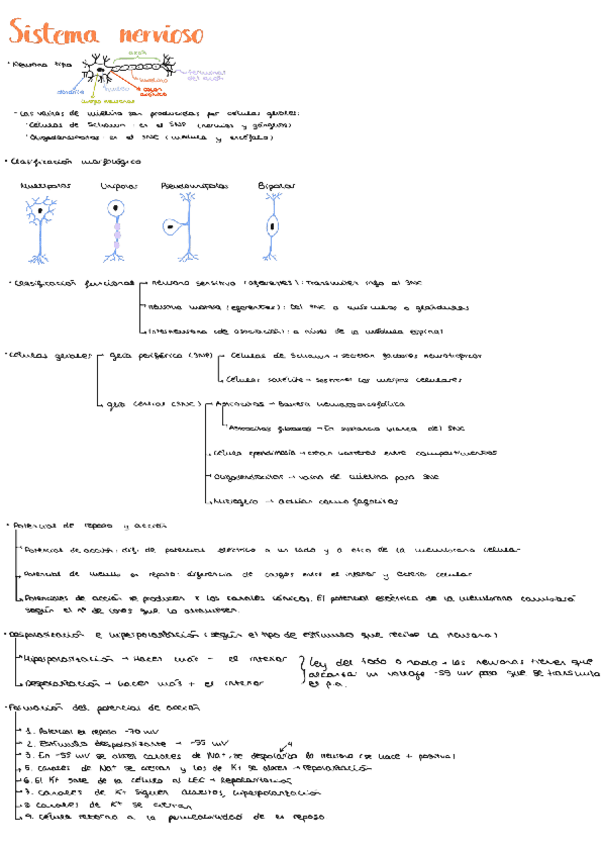 Sistema nervioso
· Neurona tipo
axón
terminales del axón
mielina
núcleo
dendrita
cuerpo neuronal
- Las vainas de mielina son producidas por células gliales:
· Células de Schawn: en el SNP (nervios y gánglios)
· Oligodendrocitos: en el SNC (médula y encéfalo)
· Clasificación morfológica
Multipolar Unipolar Pseudounipolar Bipolar
· Clasificación funcional
neurona sensitiva (aferentes): transmiten info al SNC
neurona motora (eferentes): del SNC a músculos o glándulas
Interneurona (de asociación): a nivel de la médula espinal
· Células gliales
glía periférica (SNP)
Células de Schawn → secretan factores neurotróficos
Células satélite → sostienen los cuerpos celulares
glía central (SNC)
Astrocitos → Barrera hematoencefálica
Astrocitos fibrosos → En sustancia blanca del SNC
Célula ependimaria → crean barreras entre compartimentos
Oligodendrocitos → vaina de mielina para SNC
Microglía → actúan como fagocitos
· Potencial de reposo y acción
Potencial de acción: dif. de potencial eléctrico a un lado y a otro de la membrana celular
Potencial de membr. en reposo: diferencia de cargas entre el interior y exterior celular
Potenciales de acción se producen x los canales iónicos. El potencial eléctrico de la membrana cambiará
según el nº de iones que la atraviesen.
· Despolarización e hiperpolarización (según el tipo de estímulo que recibe la neurona)
Hiperpolarización → Hacer más - el interior
Despolarización → hacer más + el interior
Ley del todo o nada → las neuronas tienen que
alcanzar un voltaje -55 mV para que se transmita
el p.a.
· Formación del potencial de acción
1. Potencial en reposo -70 mV
2. Estímulo despolarizante → -55 mV
3. En -55 mV se abren canales de Na⁺, se despolariza la neurona (se hace + positiva)
4
5. canales de Na⁺ se cierran y los de K⁺ se abren → repolarización
6. El K⁺ sale de la célula al LEC → Repolarización
7. canales de K⁺ siguen abiertos, hiperpolarización
8. canales de K⁺ se cierran
9. Célula retorna a la permeabilidad de en reposo